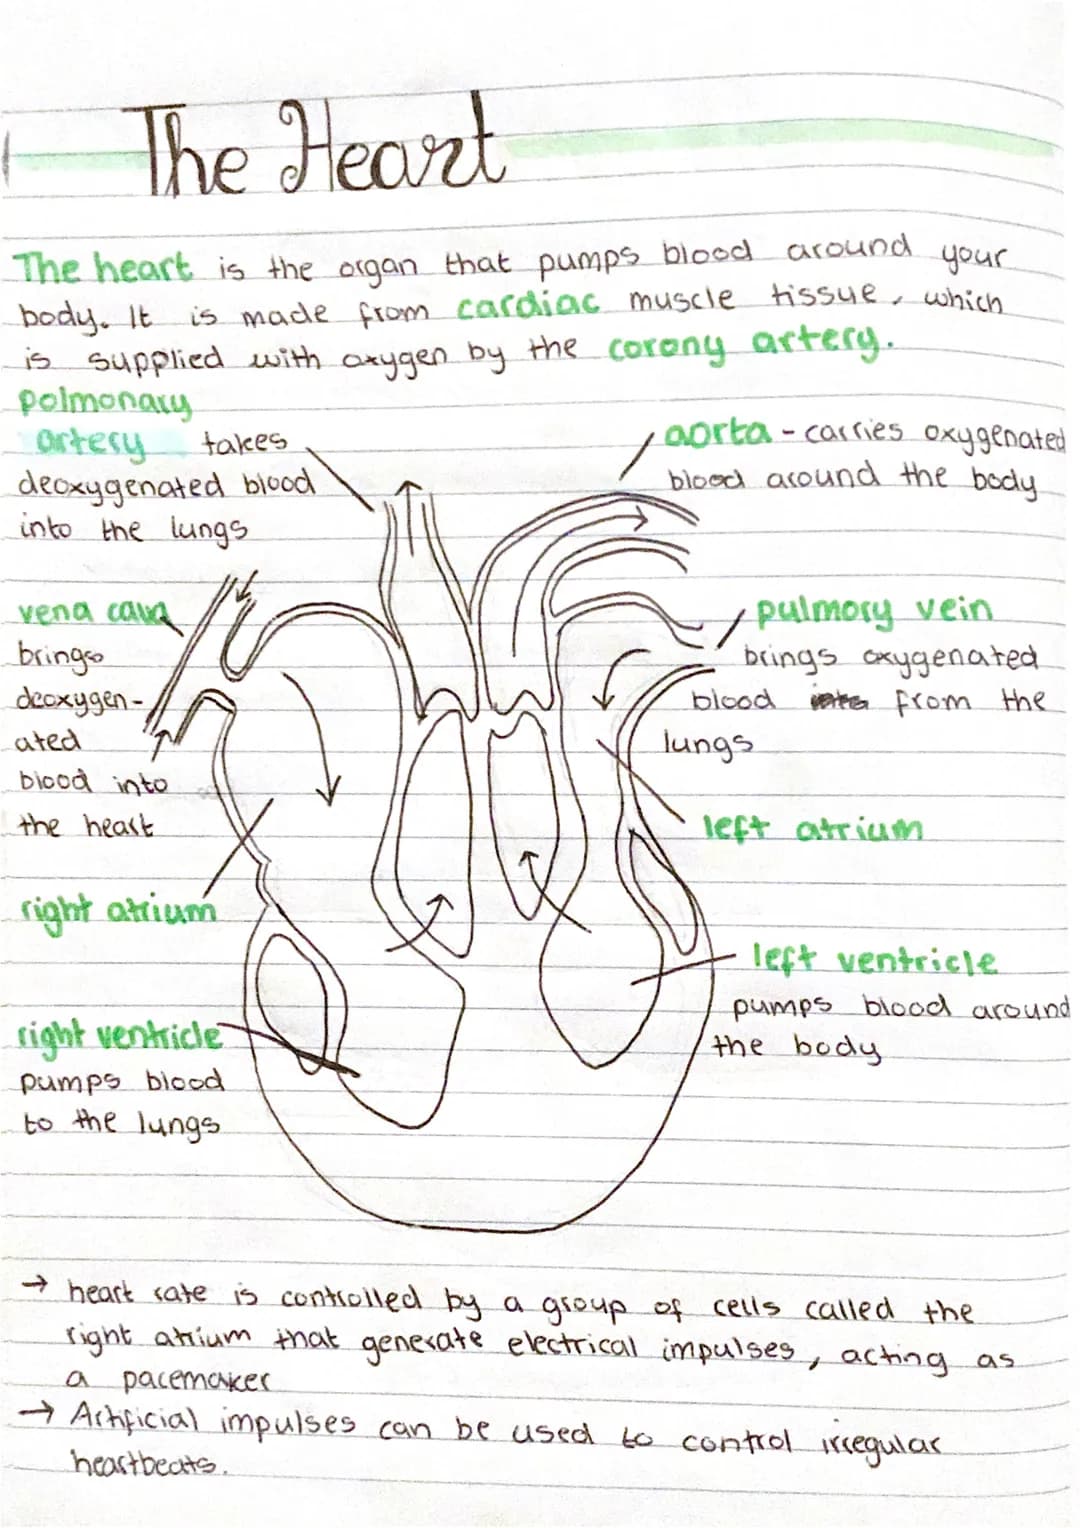 The Heart
The heart is the organ that pumps blood around your
body. It is made from cardiac muscle tissue, which
is supplied with oxygen by the corony artery.
polmonary
artery takes
deoxygenated blood
into the lungs
aorta - carries oxygenated
blood around the body
vena cava
brings
deoxygen-
ated
blood into
the heart
pulmory vein
brings oxygenated
blood from the
lungs
left atrium
right atrium
left ventricle
pumps blood around
the body
right ventricle
pumps blood
to the lungs
→ heart rate is controlled by a group of cells called the
right atrium that generate electrical impulses, acting as
a pacemaker
→ Artificial impulses can be used to control irregular
heartbeats.